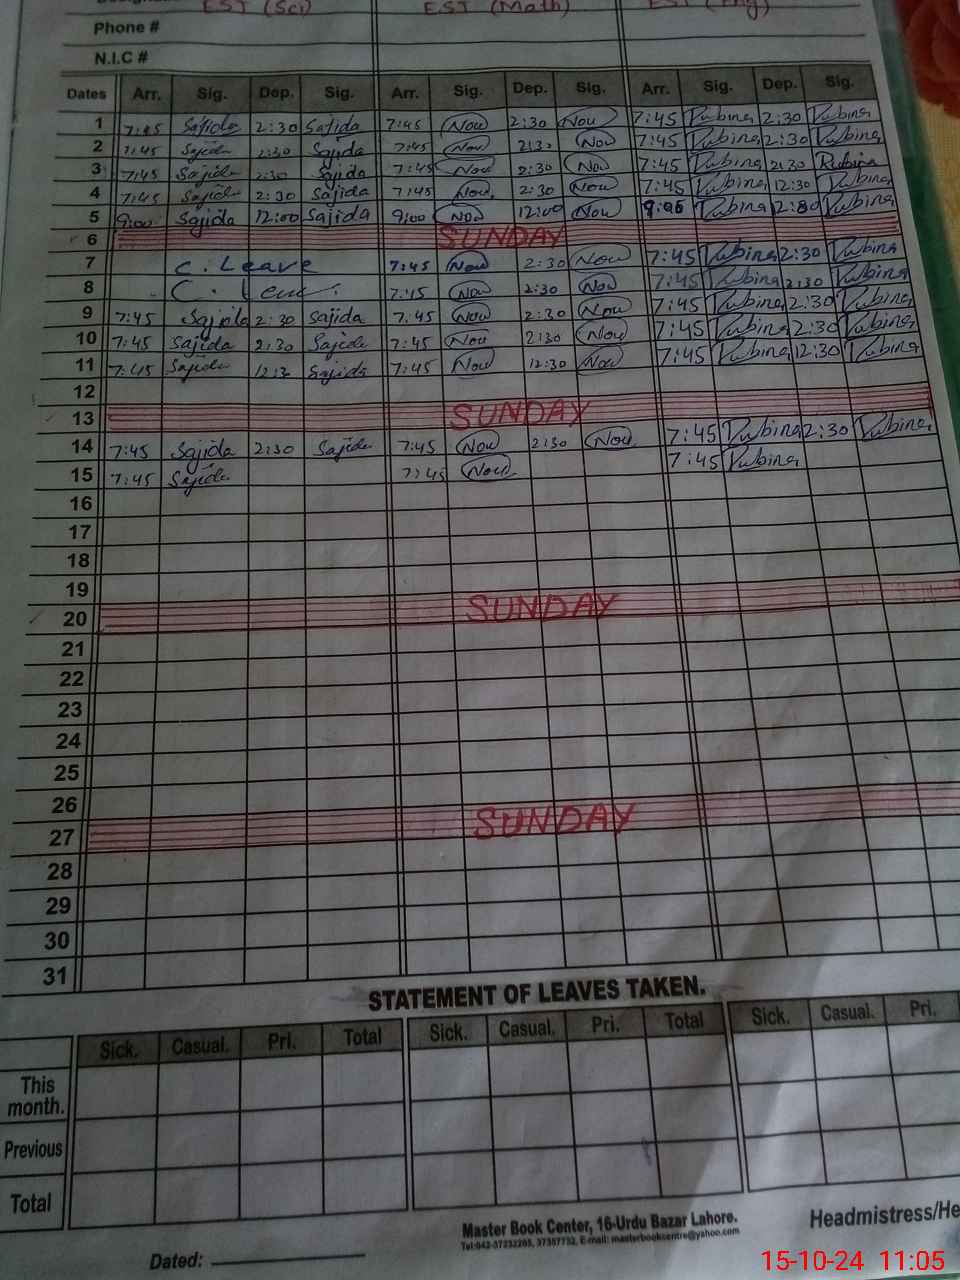 EST (Sci) EST (Math)
Phone #
N.I.C #
Dates Arr. Sig. Dep. Sig. Arr. Sig. Dep. Sig. Arr. Sig. Dep. Sig.
1 7:45 Sajida 2:30 Sajida 7:45 Nou 2:30 Nou 7:45 Rubina 2:30 Rubina
2 7:45 Sajida 2:30 Sajida 7:45 Nou 2:30 Nou 7:45 Rubina 2:30 Rubina
3 7:45 Sajida 2:30 Sajida 7:45 Nou 2:30 Nou 7:45 Rubina 2:30 Rubina
4 7:45 Sajida 2:30 Sajida 7:45 Nou 2:30 Nou 7:45 Rubina 12:30 Rubina
5 9:00 Sajida 12:00 Sajida 9:00 Nou 12:00 Nou Rubina Rubina
6 SUNDAY
7 C. Leave 7:45 Nou 2:30 Nou 7:45 Rubina 2:30 Rubina
8 C. 7:45 Nou 2:30 Nou 7:45 Rubina 2:30 Rubina
9 7:45 Sajida 2:30 Sajida 7:45 Nou 2:30 Nou 7:45 Rubina 2:30 Rubina
10 7:45 Sajida 2:30 Sajida 7:45 Nou 2:30 Nou 7:45 Rubina 2:30 Rubina
11 7:45 Sajida Sajida 7:45 Nou 12:30 Nou 7:45 Rubina 12:30 Rubina
12
13 SUNDAY
14 7:45 Sajida 2:30 Sajida 7:45 Nou 2:30 Nou 7:45 Rubina 2:30 Rubina
15 7:45 Sajida 7:45 Nou 7:45 Rubina
16
17
18
19
20 SUNDAY
21
22
23
24
25
26
27 SUNDAY
28
29
30
31
STATEMENT OF LEAVES TAKEN.
Sick. Casual. Pri. Total Sick. Casual. Pri. Total Sick. Casual. Pri.
This
month.
Previous
Total
Master Book Center, 16-Urdu Bazar Lahore.
E-mail: masterbookcentre@yahoo.com
Headmistress/He
Dated:
15-10-24 11:05